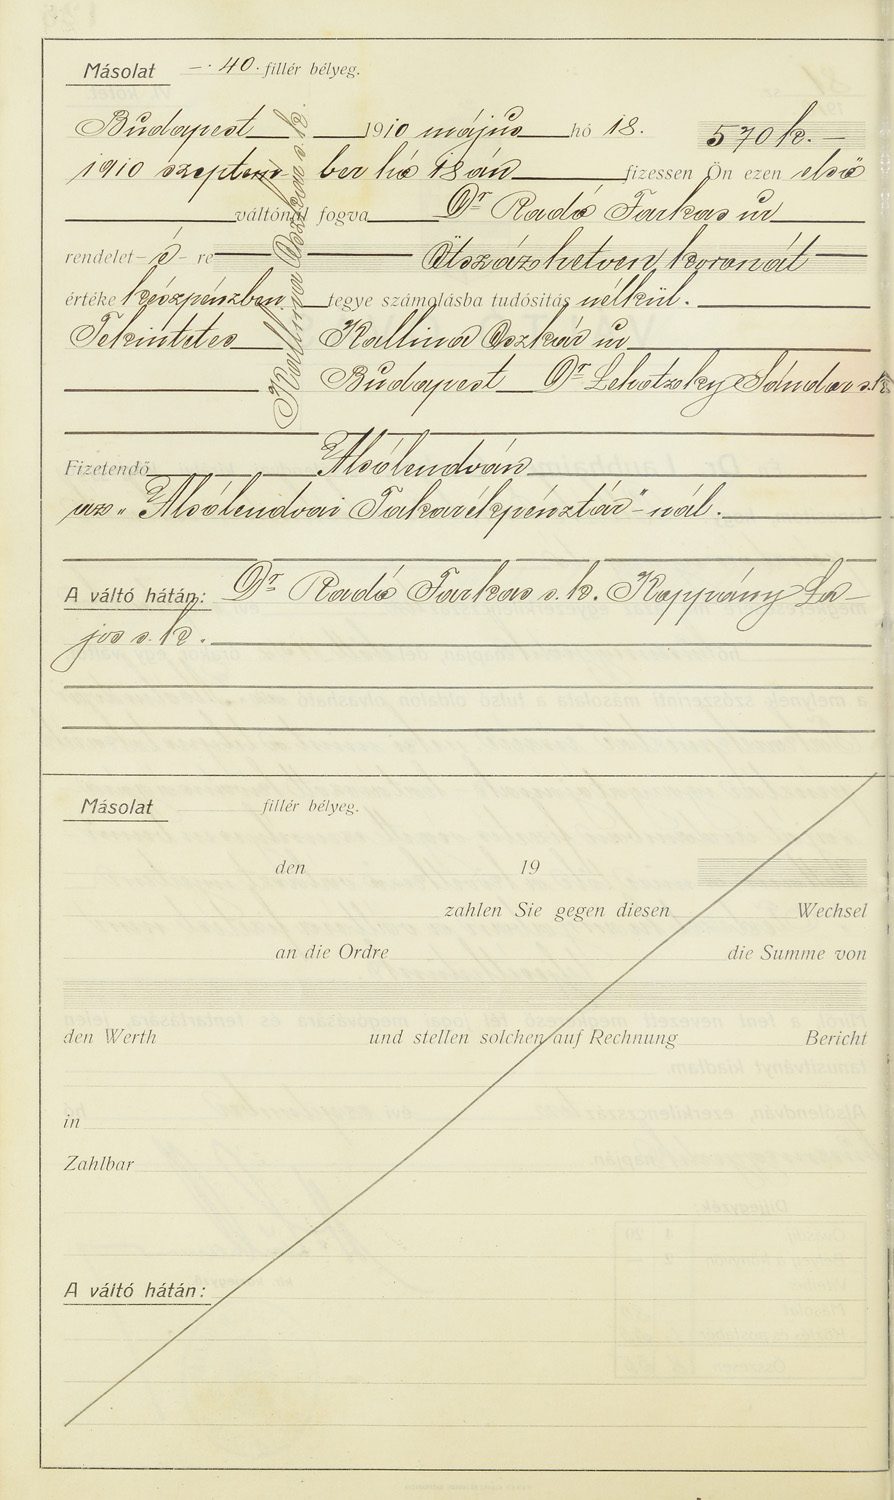 Másolat —·40· fillér bélyeg.
Budapest 1910 május hó 18. 570 k. —
1910 szeptem- ber hó 18 án fizessen Ön ezen első
váltónál fogva Dr Radó Farkas úr
rendelet-é-re Ötszázhetven koronát
értéke készpénzben tegye számolásba tudósítás nélkül.
Tekintetes Kallina Oszkár úr
Budapest Dr Lehotzky Sándor s.k.
Kallina Oszkár s. k.
Fizetendő Alsólendván
az „Alsólendvai Takarékpénztár"-nál.
A váltó hátán: Dr Radó Farkas s. k. Koppány La-
jos s. k.
Másolat fillér bélyeg.
den 19
zahlen Sie gegen diesen Wechsel
an die Ordre die Summe von
den Werth und stellen solchen auf Rechnung Bericht
in
Zahlbar
A váltó hátán: